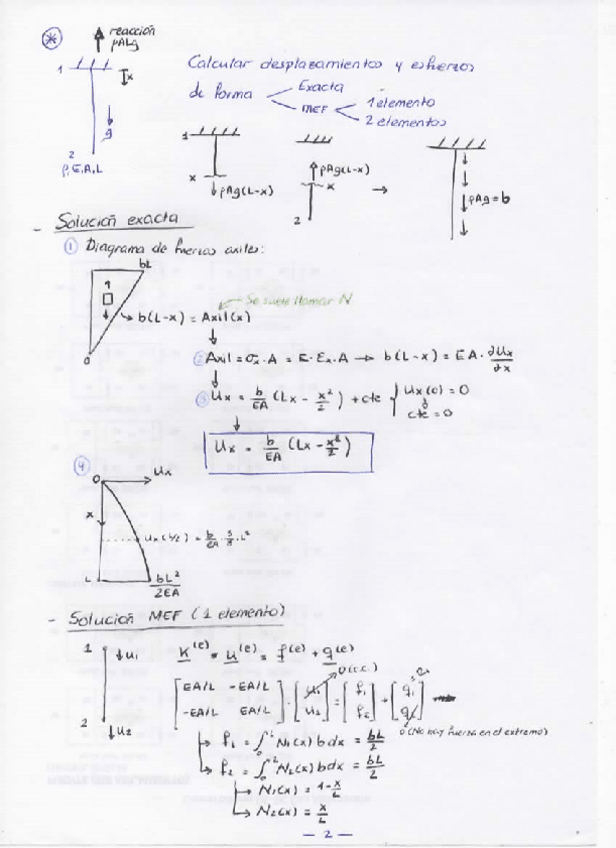 reacción
ρALg
1
x
g
2
ρ, E, A, L
Calcular desplazamientos y esfuerzos
de forma
Exacta
MEF
1 elemento
2 elementos
1
x
ρAg(L-x)
ρAg(L-x)
x
2
→
ρAg = b
- Solución exacta
① Diagrama de fuerzas axiles:
bL
0
Se suele llamar N
b(L-x) = Axil(x)
② Axil = σx · A = E · Ex · A → b(L-x) = EA · ∂Ux/∂x
③ Ux = b/EA (Lx - x²/2) + cte { Ux(0) = 0
cte = 0
Ux = b/EA (Lx - x²/2)
④
0
Ux
x
Ux(L/2) = b/EA · 3/8 · L²
L
bL²/2EA
- Solución MEF (1 elemento)
1
u1
2
u2
K^(e) · u^(e) = f^(e) + q^(e)
0 (c.c.)
[EA/L -EA/L; -EA/L EA/L] · [u1; u2] = [f1; f2] + [q1; q2]
0 (No hay fuerza en el extremo)
f1 = ∫₀^L N1(x) b dx = bL/2
f2 = ∫₀^L N2(x) b dx = bL/2
N1(x) = 1 - x/L
N2(x) = x/L
- 2 -